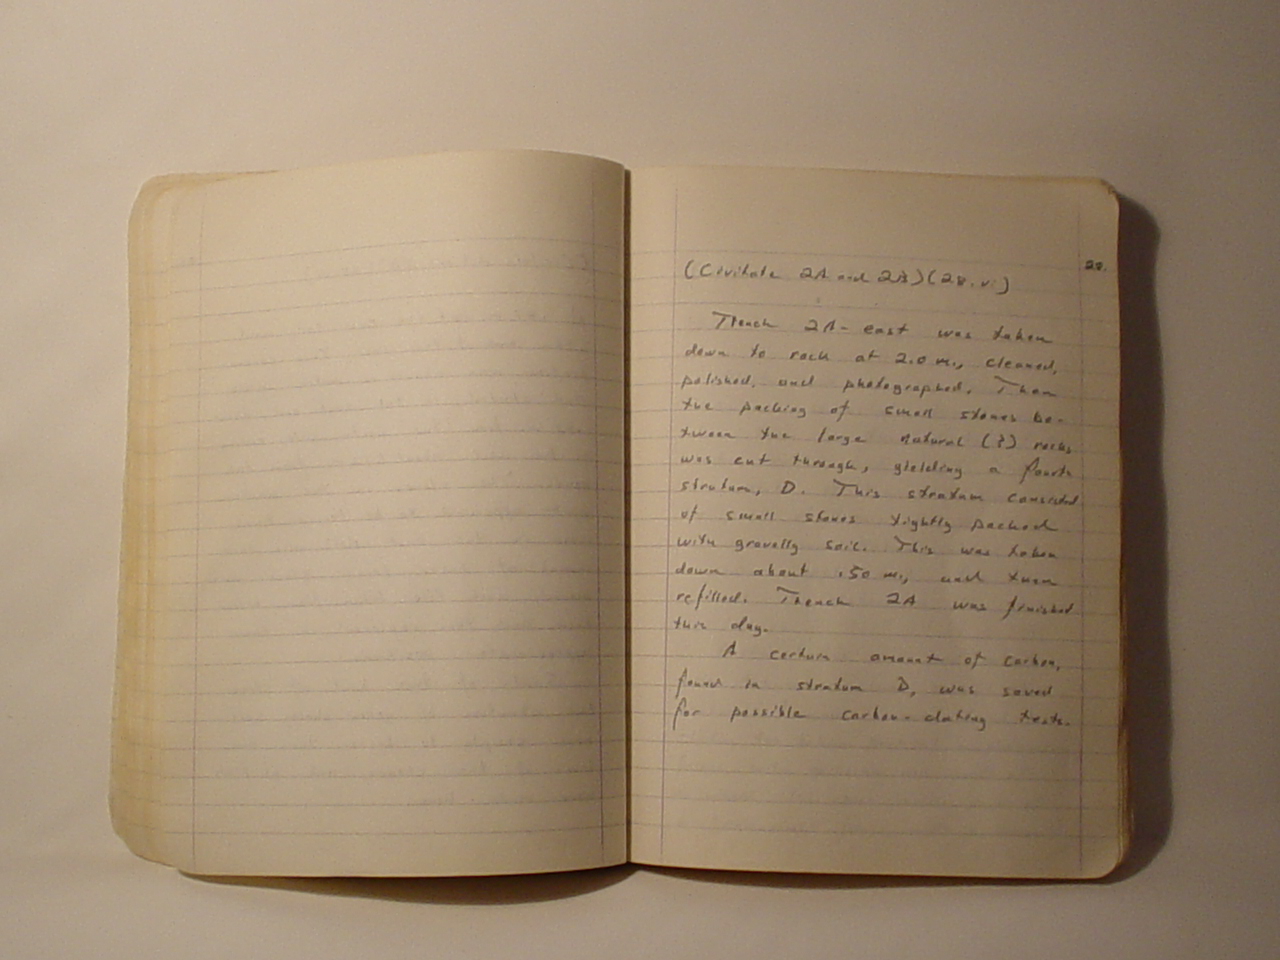 28.
(Civitate 2A and 2B) (28.vi)
Trench 2A-east was taken
down to rock at 2.0 m., cleaned,
polished, and photographed. Then
the packing of small stones be-
tween the large natural (?) rocks
was cut through, yielding a fourth
stratum, D. This stratum consisted
of small stones tightly packed
with gravelly soil. This was taken
down about .50 m., and then
refilled. Trench 2A was finished
this day.
A certain amount of carbon,
found in stratum D, was saved
for possible carbon-dating tests.